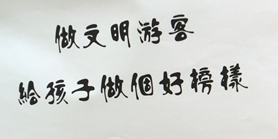 做文明游客
給孩子做個好榜樣